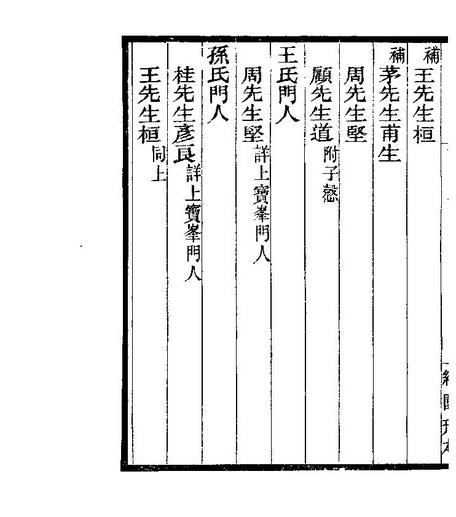 補王先生桓
補茅先生甫生
周先生堅
顧先生道附子慤
王氏門人
周先生堅詳上寶峯門人
孫氏門人
桂先生彥良詳上寶峯門人
王先生桓同上